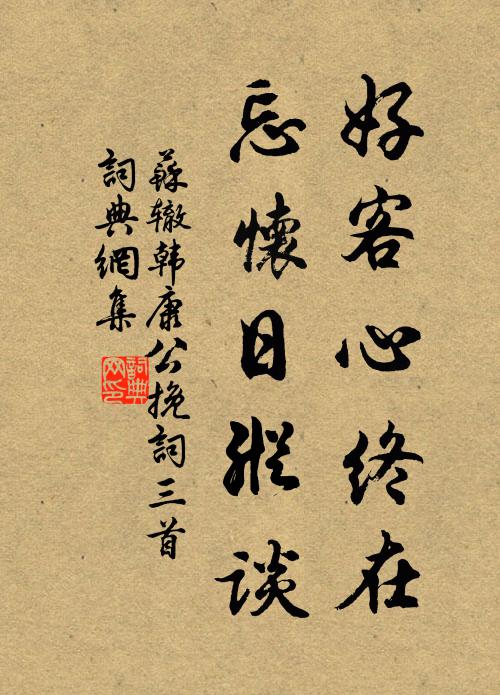 好客心终在
忘懷日縱谈
蘇辙韩康公挽詞三首
詞典網集
詞典网印